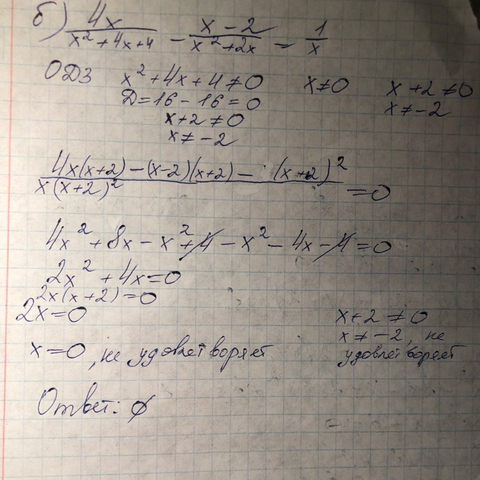 б) 4x/(x² + 4x + 4) − (x − 2)/(x² + 2x) = 1/x
ОДЗ x² + 4x + 4 ≠ 0 x ≠ 0 x + 2 ≠ 0
D = 16 − 16 = 0 x ≠ −2
x + 2 ≠ 0
x ≠ −2
(4x(x+2) − (x−2)(x+2) − (x+2)²)/(x(x+2)²) = 0
4x² + 8x − x² + 4 − x² − 4x − 4 = 0
2x² + 4x = 0
2x(x + 2) = 0
2x = 0 x + 2 ≠ 0
x = 0, не удовлетворяет x ≠ −2, не удовлетворяет
Ответ: ∅